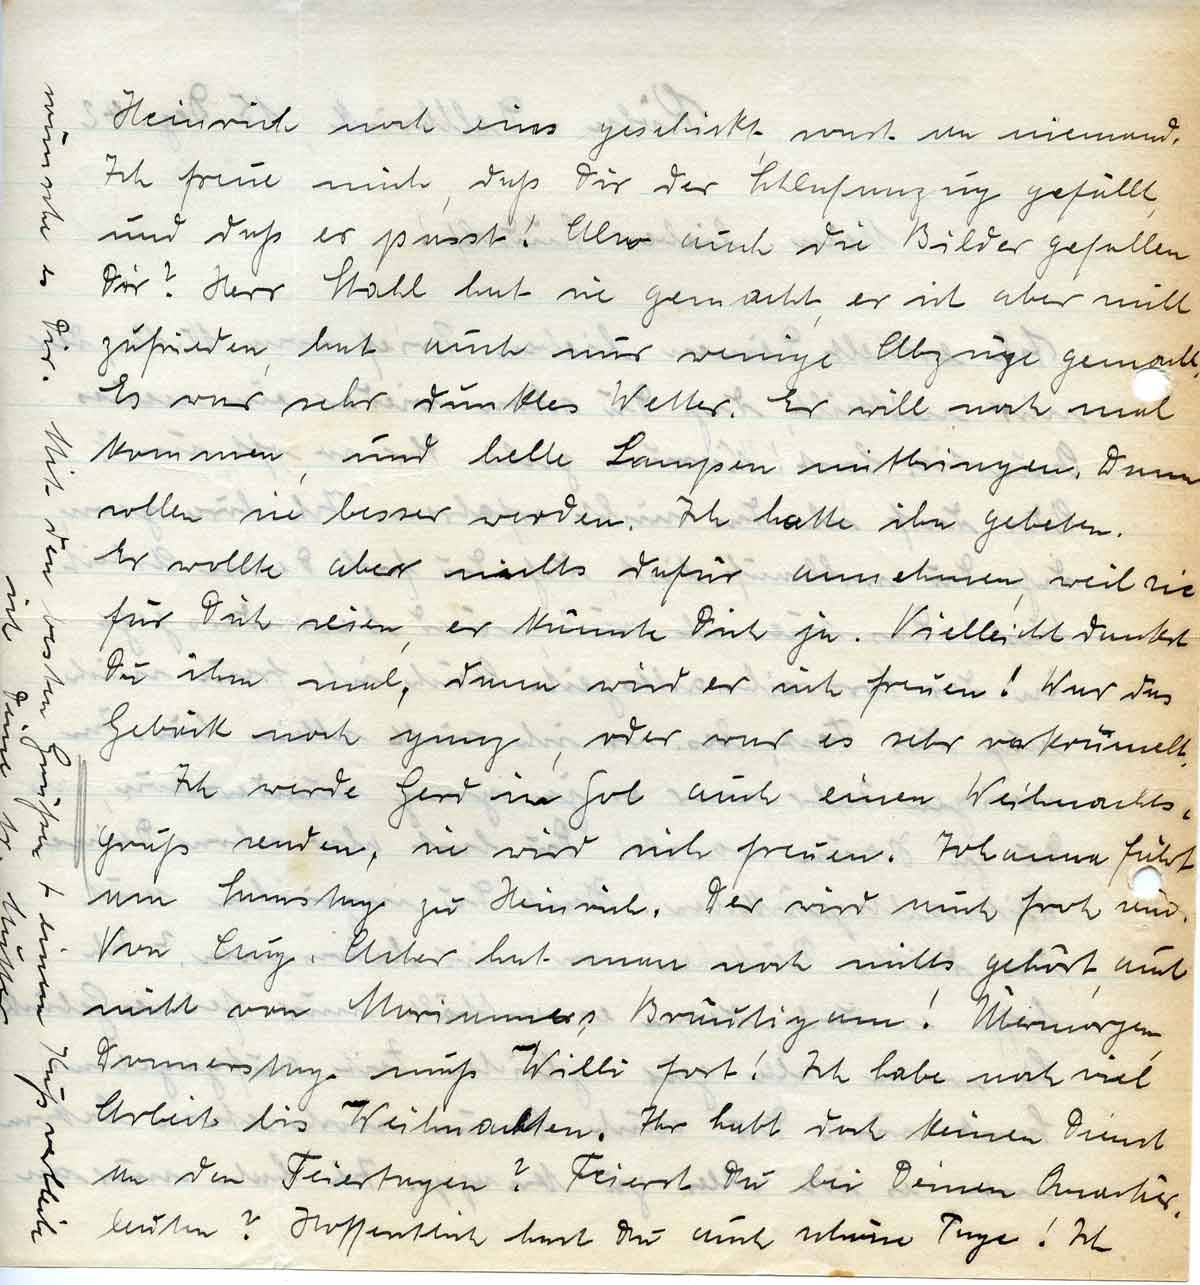 Heinrich noch eins geschickt, sonst an niemand.
Ich freue mich, daß Dir der Schlafanzug gefällt,
und daß er passt! Also auch die Bilder gefallen
Dir? Herr Stahl hat sie gemacht, er ist aber nicht
zufrieden, hat auch nur wenige Abzüge gemacht,
Es war sehr dunkles Wetter. Er will noch mal
kommen, und helle Lampen mitbringen. Dann
sollen sie besser werden. Ich hatte ihn gebeten.
Er wollte aber nichts dafür annehmen, weil sie
für Dich seien, er kännte Dich ja. Vielleicht dankst
Du ihm mal, dann wird er sich freuen! War das
Gebäck noch ganz, oder war es sehr verkrümelt.
Ich werde Gerd in Gol auch einen Weihnachts-
gruß senden, sie wird sich freuen. Johanna fährt
am Samstag zu Heinrich. Der wird auch froh sein.
Von Aug. hat man noch nichts gehört, auch
nicht von Mariannes Bräutigam! Übermorgen,
Donnerstag muß Willi fort! Ich habe noch viel
Arbeit bis Weihnachten. Ihr habt doch keinen Dienst
an den Feiertagen? Feierst Du bei Deinen Quartier-
leuten? Hoffentlich hast Du auch schöne Tage! Ich
wünsche es Dir. Mit den besten Grüßen + einem Kuß verbleibe
ich Deine tr. Mutter